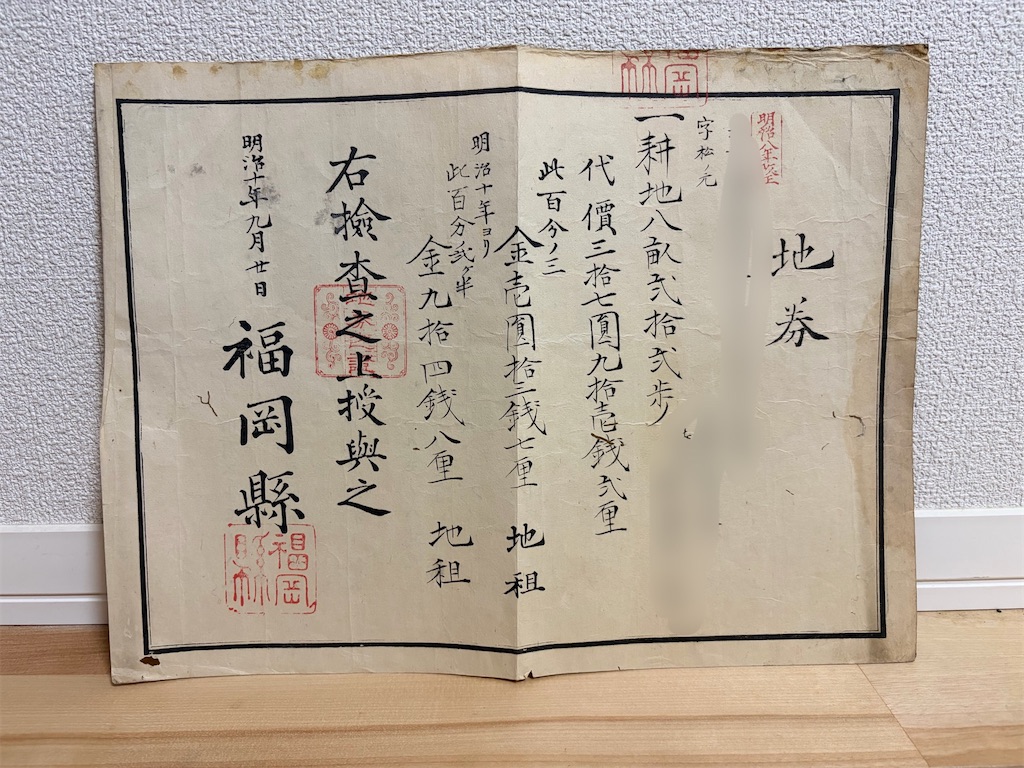 地券
明治八年改正
字松元
一耕地八畝弐拾弐歩
代價三拾七圓九拾壱銭弐厘
此百分ノ三
金壱圓拾三銭七厘 地租
明治十年ヨリ
此百分弐ケ半
金九拾四銭八厘 地租
右撿査之上授與之
明治十年九月廿日 福岡縣
福岡縣